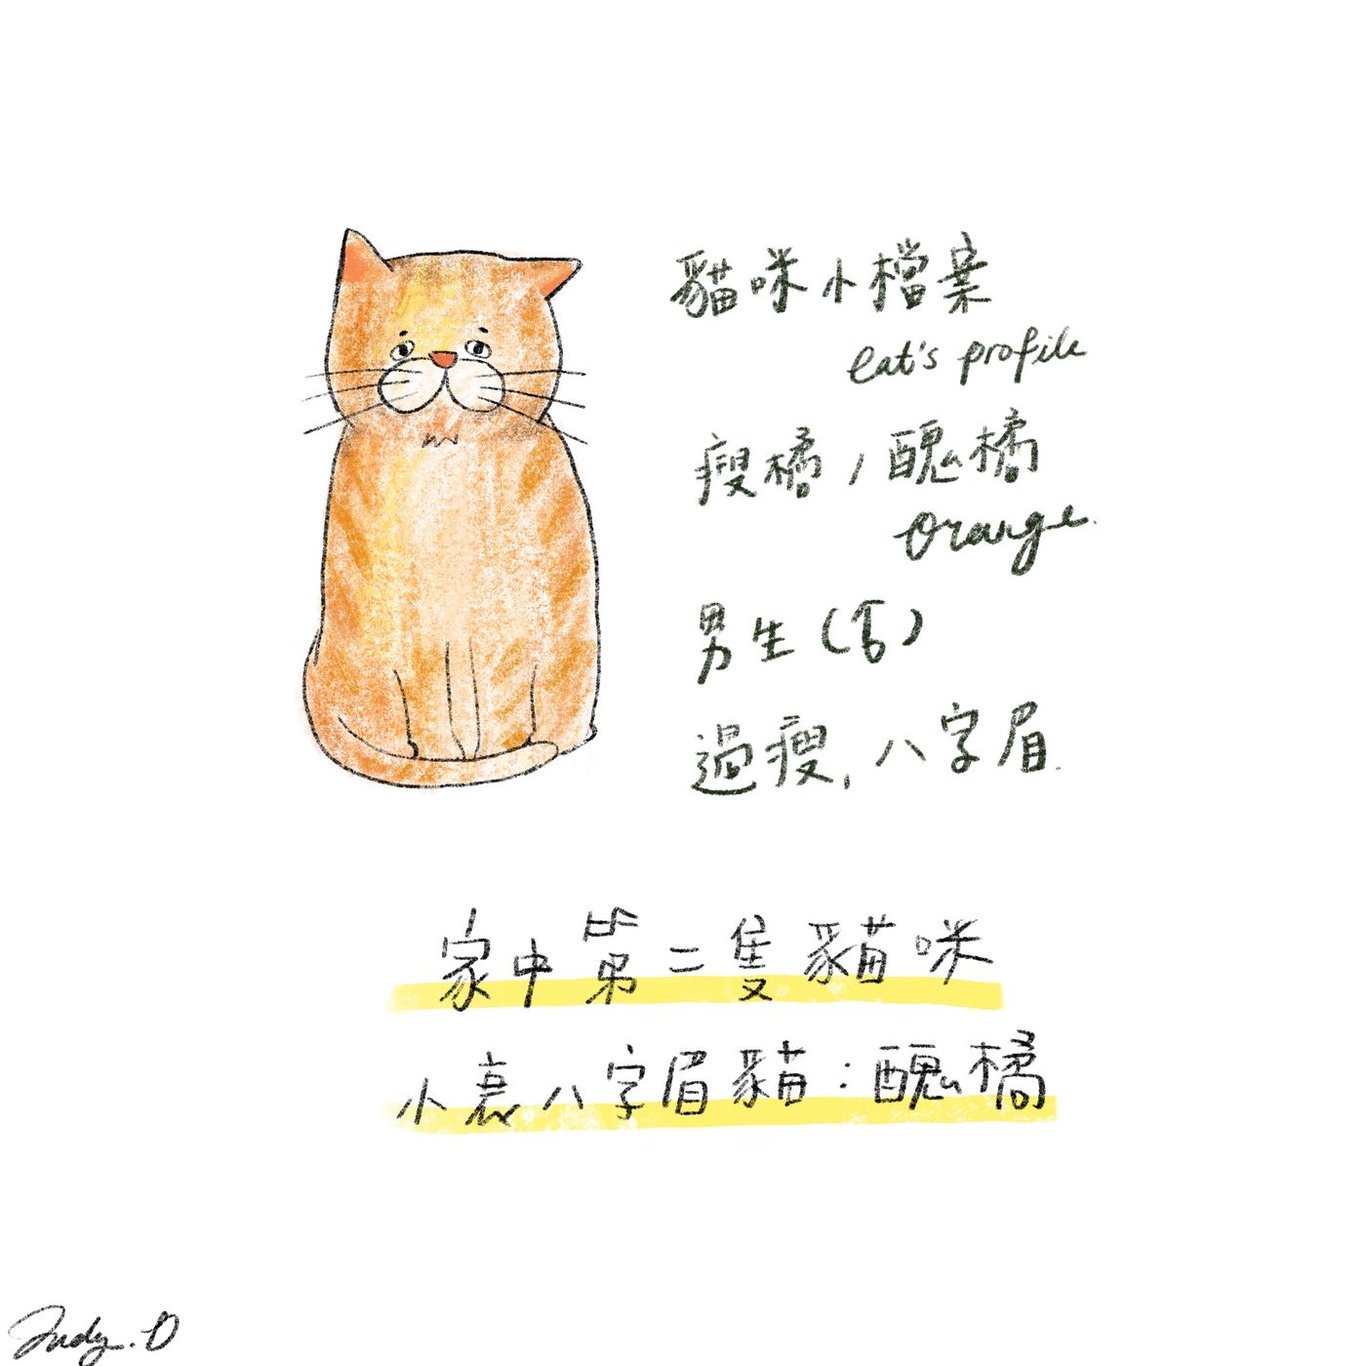 貓咪小檔案
cat's profile
瘦橘/醜橘
orange.
男生()
過瘦,八字眉.
家中第二隻貓咪
小衰八字眉貓:醜橘
Judy.D